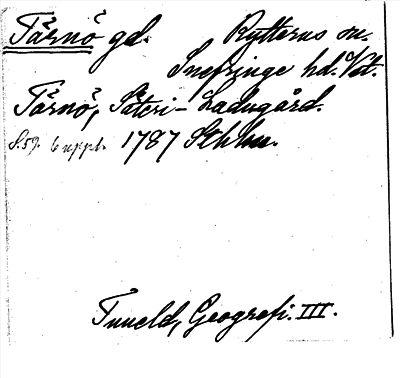 Tärnö gd. Rytterns sn.
Snefringe hd. Vst.
Tärnö, Säteri-Ladugård.
S. 59. 6 uppl. 1787 Sthlm.
Tuneld, Geografi. III.